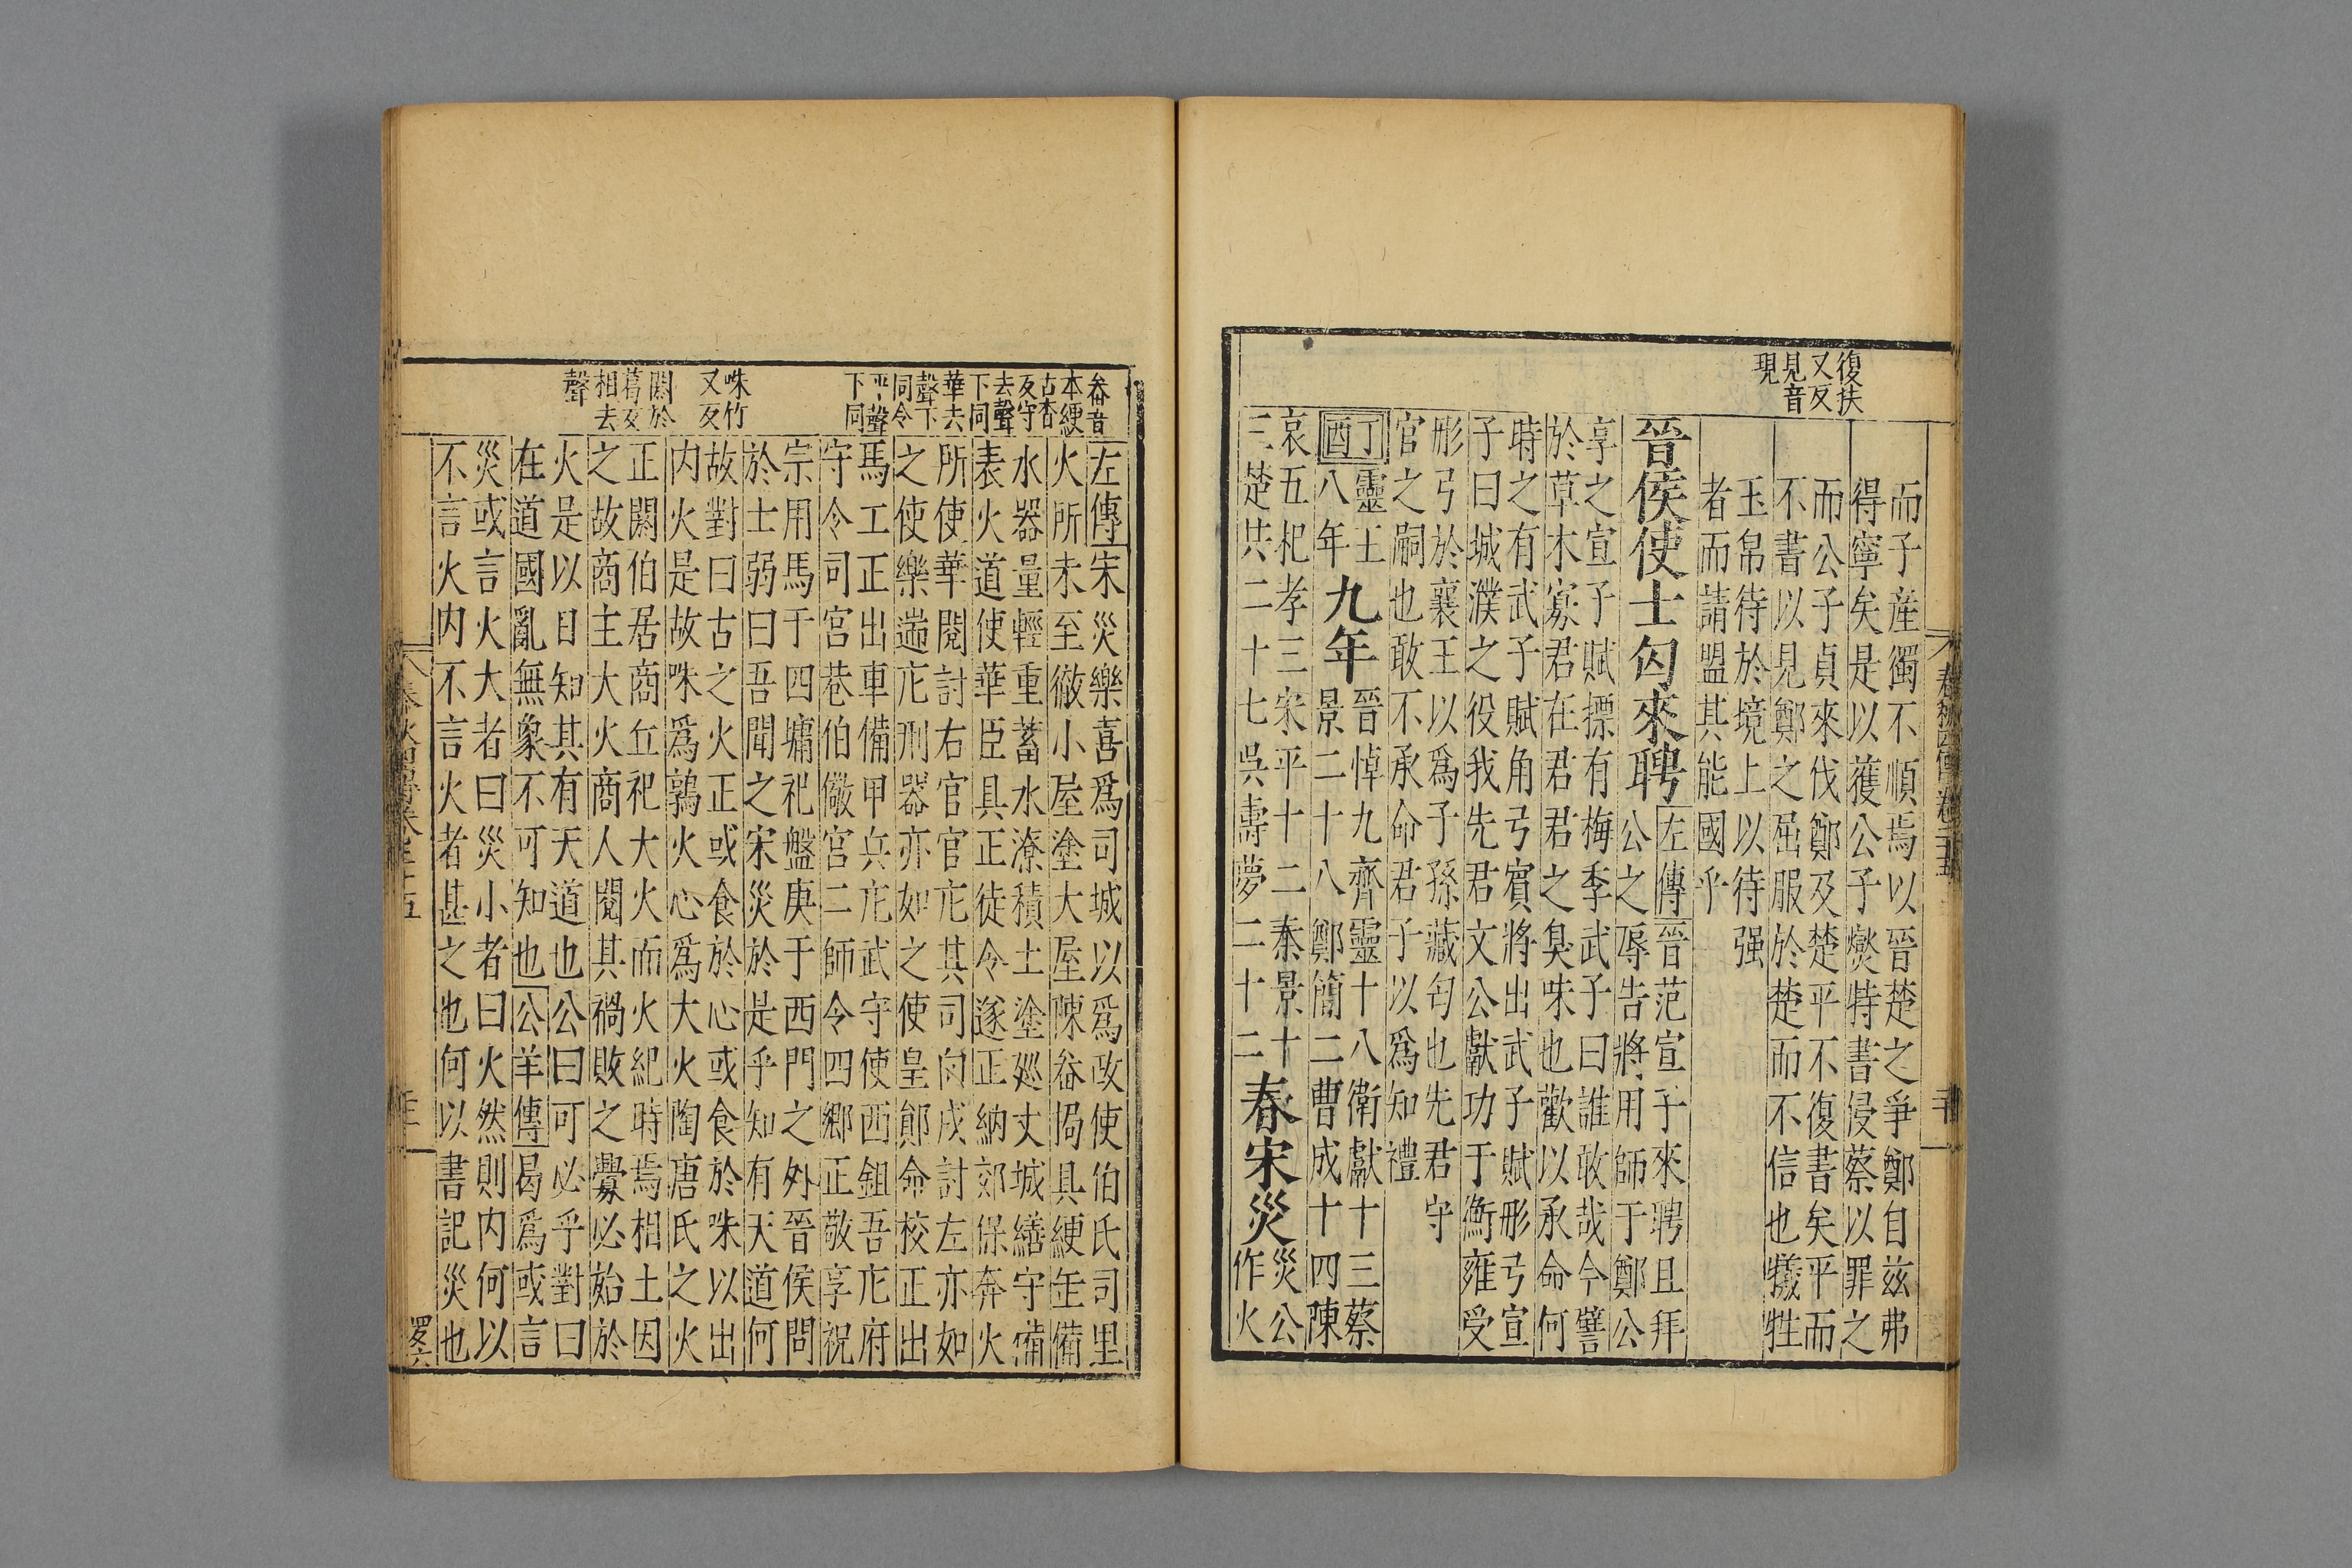 復扶
又反
見音
現
而子産獨不順焉以晉楚之爭鄭自兹弗
得寧矣是以獲公子燮特書侵蔡以罪之
而公子貞來伐鄭及楚平不復書矣平而
不書以見鄭之屈服於楚而不信也犧牲
玉帛待於境上以待强
者而請盟其能國乎
晉侯使士匄來聘
左傳晉范宣子來聘且拜
公之辱告將用師于鄭公
享之宣子賦摽有梅季武子曰誰敢哉今譬
於草木寡君在君君之臭味也歡以承命何
時之有武子賦角弓賓將出武子賦彤弓宣
子曰城濮之役我先君文公獻功于衡雍受
彤弓於襄王以爲子孫藏匄也先君守
官之嗣也敢不承命君子以爲知禮
丁靈王
酉八年
九年
晉悼九齊靈十八衛獻十三蔡
景二十八鄭簡二曹成十四陳
哀五杞孝三宋平十二秦景十
三楚共二十七吳壽夢二十二
春宋災
災公
作火
畚音
本綆
古杏
反守
去聲
下同
華去
聲下
同令
平聲
下同
咮竹
又反
閼於
葛反
相去
聲
左傳宋災樂喜爲司城以爲政使伯氏司里
火所未至徹小屋塗大屋陳畚挶具綆缶備
水器量輕重蓄水潦積土塗廵丈城繕守備
表火道使華臣具正徒令遂正納郊保奔火
所使華閱討右官官庀其司向戌討左亦如
之使樂遄庀刑器亦如之使皇鄖命校正出
馬工正出車備甲兵庀武守使西鉏吾庀府
守令司宮巷伯儆宮二師令四鄉正敬享祝
宗用馬于四墉祀盤庚于西門之外晉侯問
於士弱曰吾聞之宋災於是乎知有天道何
故對曰古之火正或食於心或食於咮以出
内火是故咮爲鶉火心爲大火陶唐氏之火
正閼伯居商丘祀大火而火紀時焉相土因
之故商主大火商人閱其禍敗之釁必始於
火是以日知其有天道也公曰可必乎對曰
在道國亂無象不可知也公羊傳曷爲或言
災或言火大者曰災小者曰火然則内何以
不言火内不言火者甚之也何以書記災也